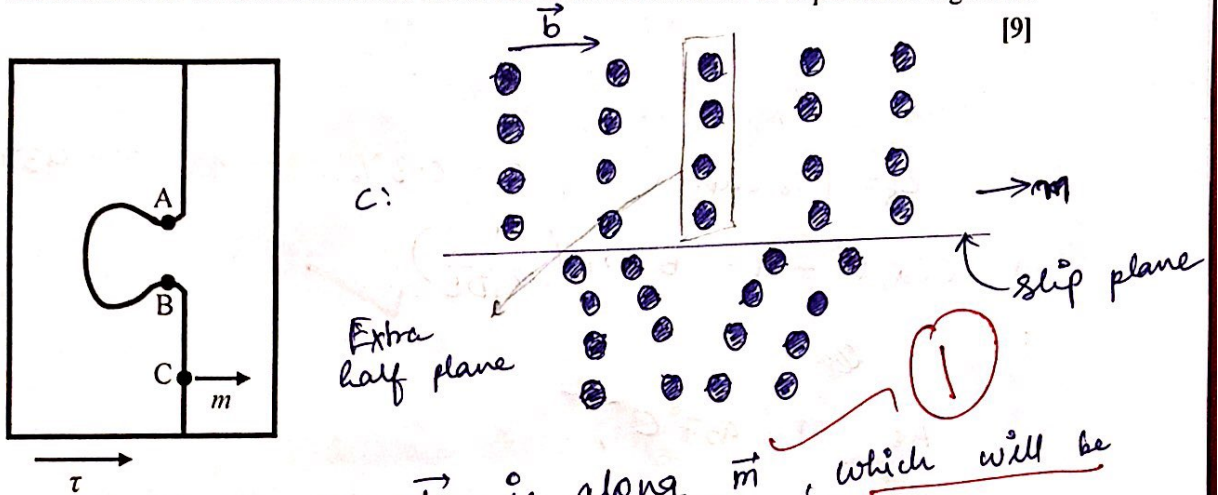 [9]
b
A
B
C
m
τ
C:
→m
slip plane
Extra
half plane
1
is along m, which will be